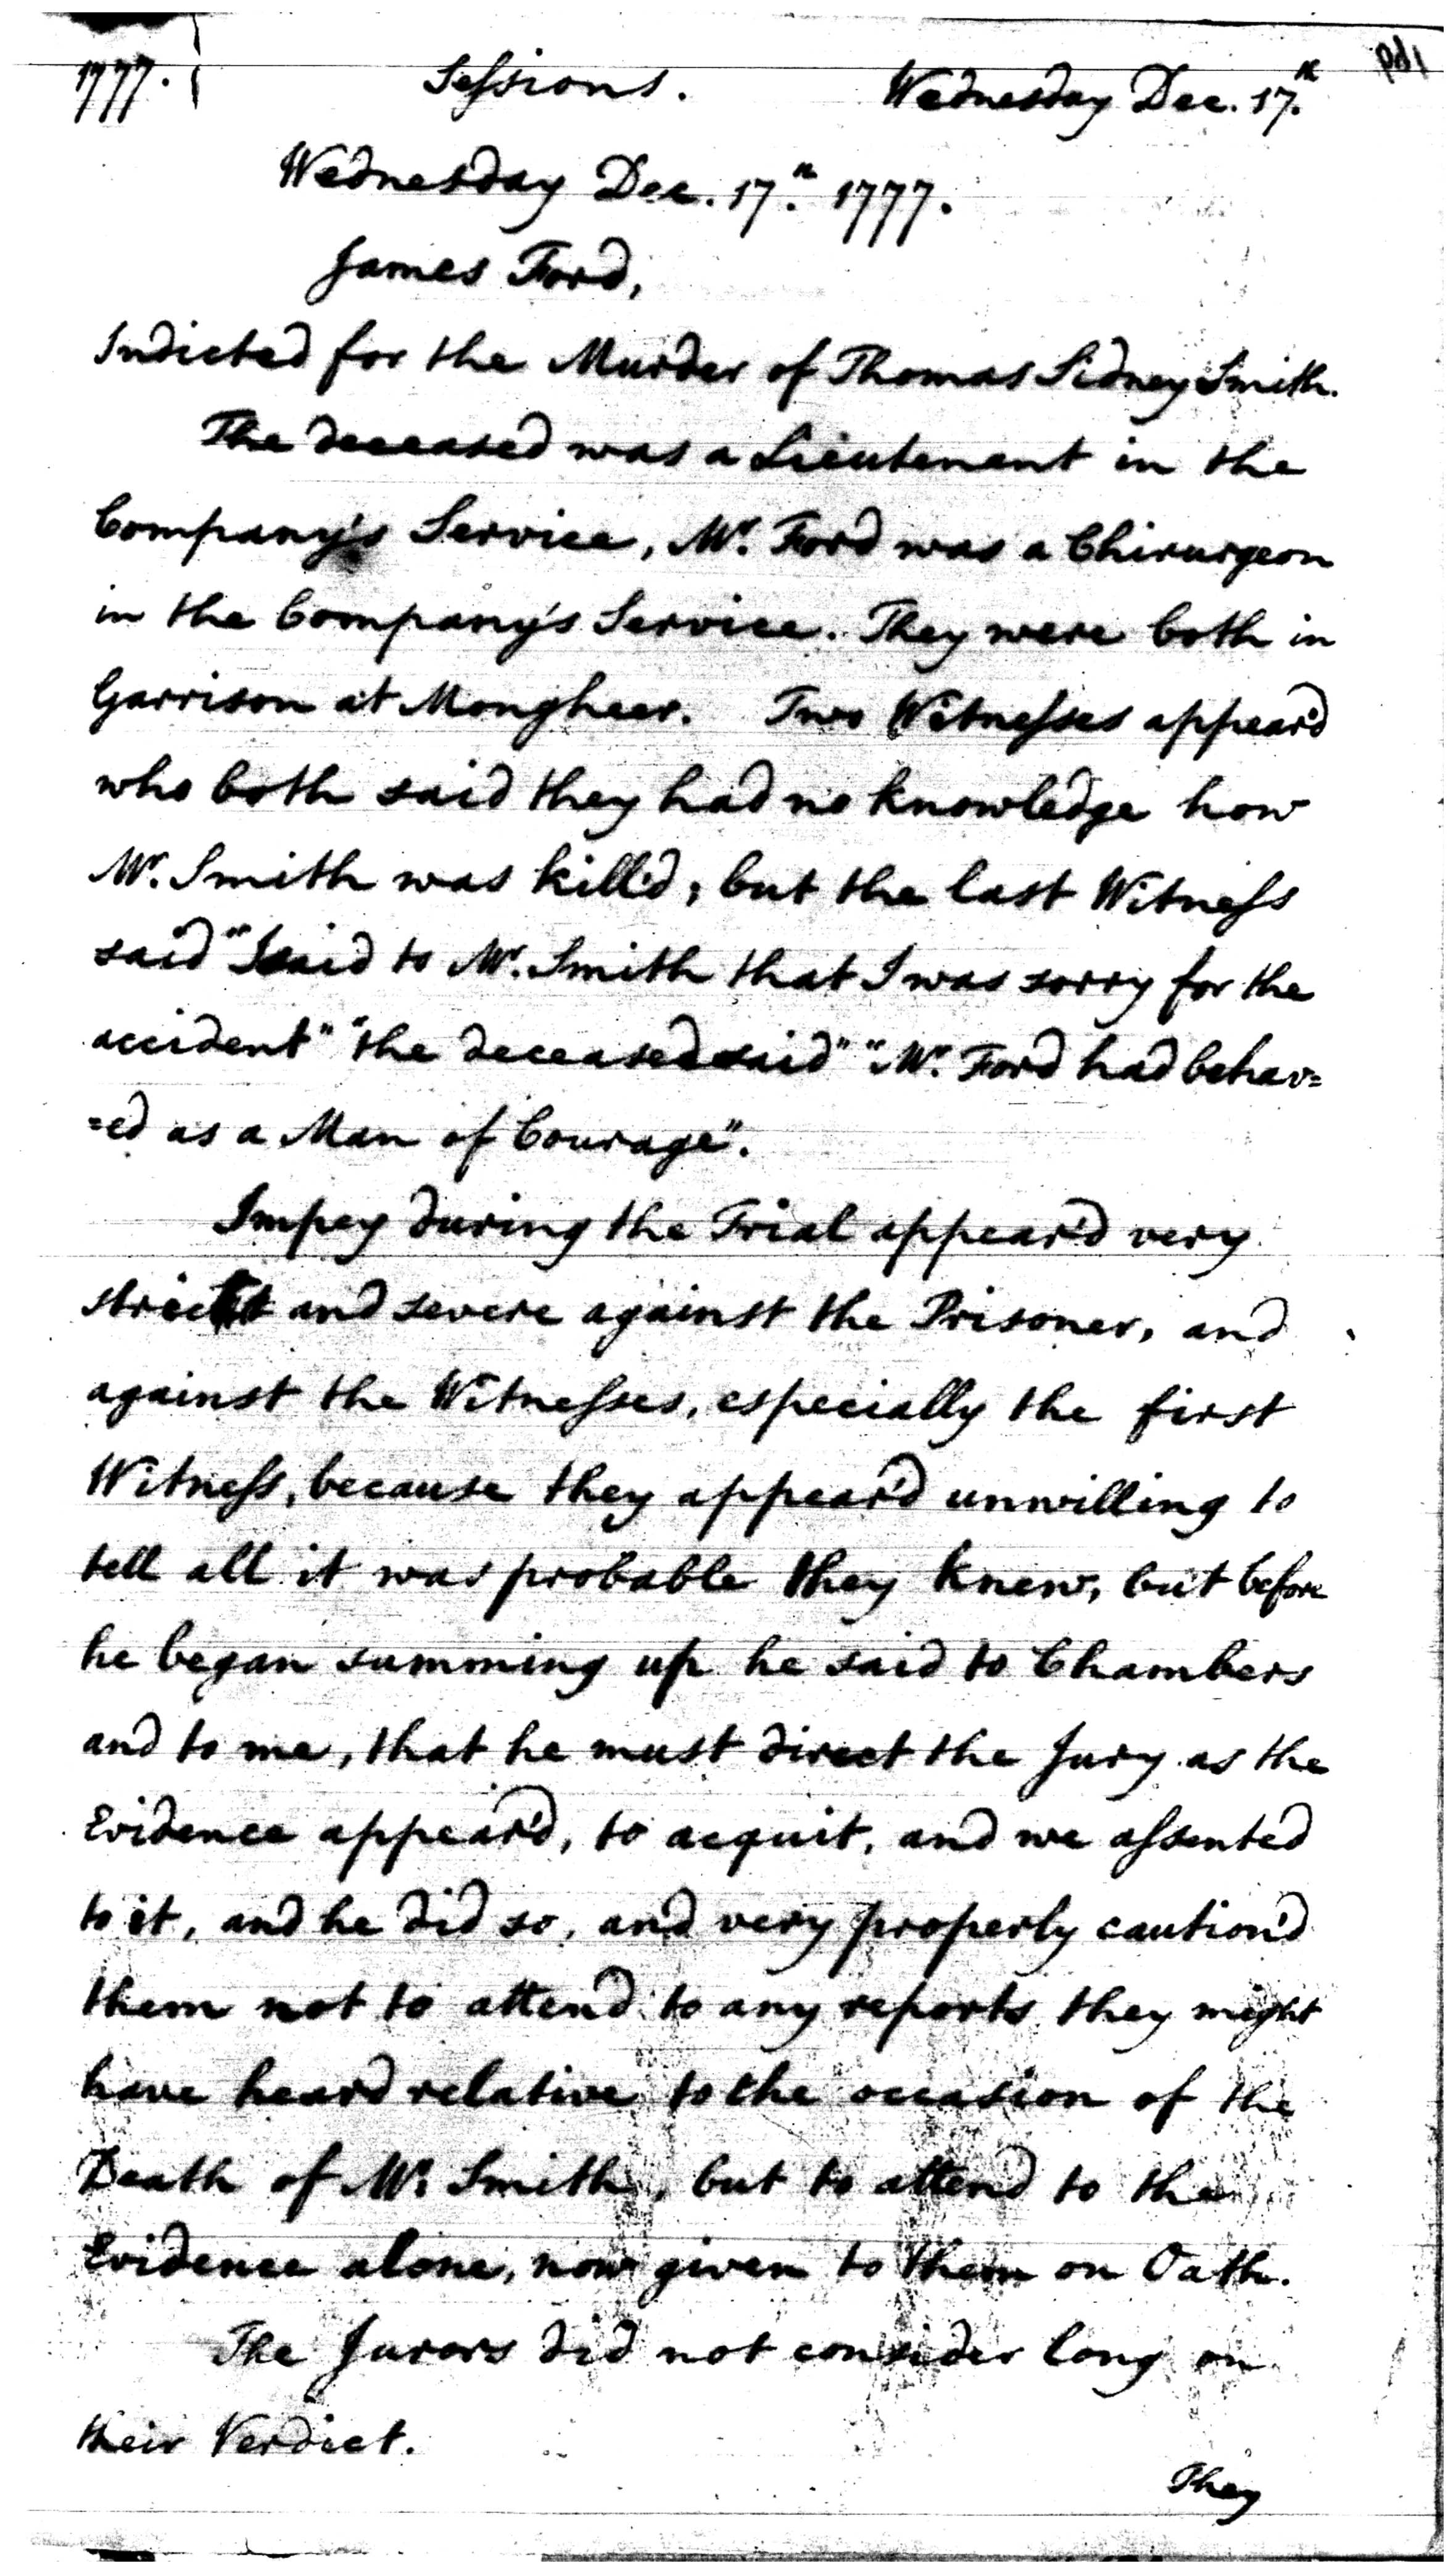 1777. Sessions. Wednesday Dec. 17.th
Wednesday Dec. 17.th 1777.
James Ford,
Indicted for the Murder of Thomas Sidney Smith.
The deceased was a Lieutenant in the
Company's Service, Mr. Ford was a Chirurgeon
in the Company's Service. They were both in
Garrison at Mongheer. Two Witnesses appear'd
who both said they had no knowledge how
Mr. Smith was kill'd; but the last Witness
said "I said to Mr. Smith that I was sorry for the
accident" "the deceased said" "Mr. Ford had behav=
=ed as a Man of Courage".
Impey during the Trial appear'd very
strict and severe against the Prisoner, and
against the Witnesses, especially the first
Witness, because they appear'd unwilling to
tell all it was probable they knew, but before
he began summing up he said to Chambers
and to me, that he must direct the Jury as the
Evidence appear'd, to acquit, and we assented
to it, and he did so, and very properly caution'd
them not to attend to any reports they might
have heard relative to the occasion of the
Death of Mr. Smith, but to attend to the
Evidence alone, now given to them on Oath.
The Jurors did not consider long on
their Verdict.
They